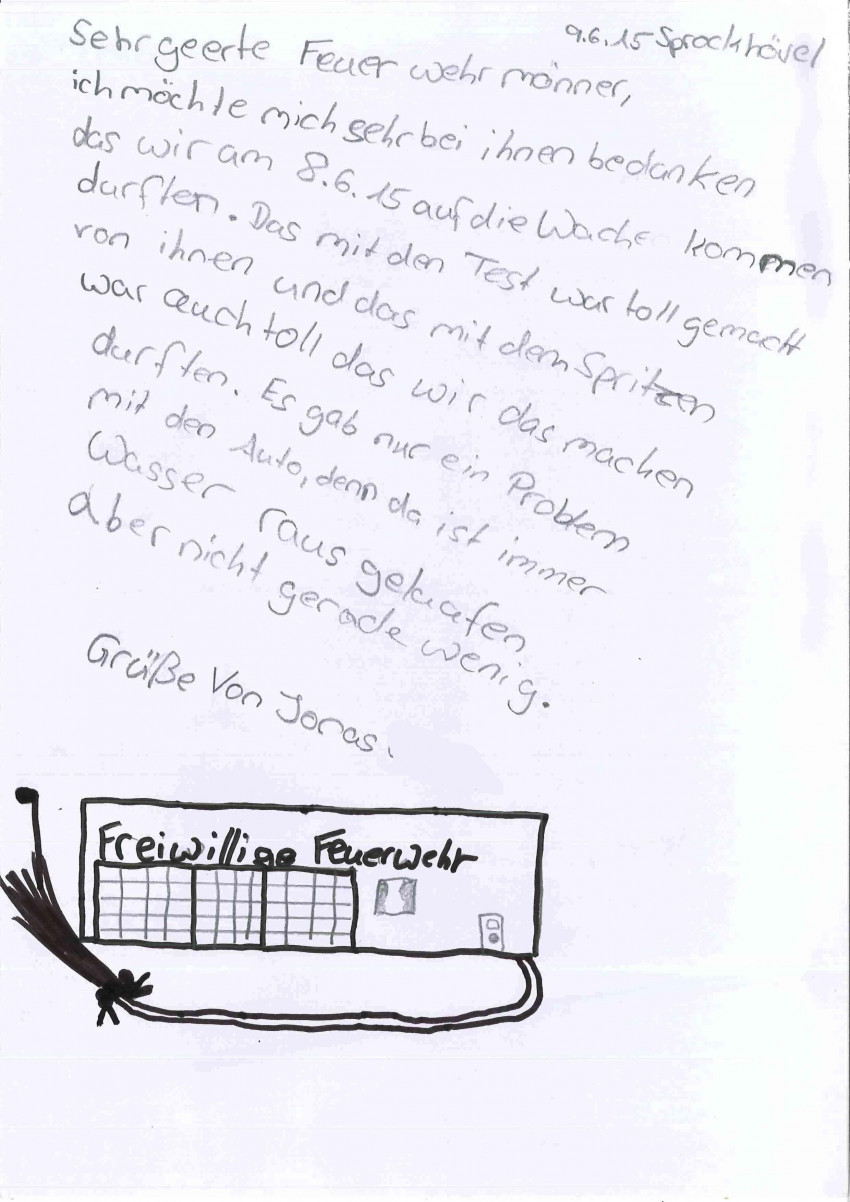 9.6.15 Sprockhövel
Sehr geerte Feuer wehr männer,
ich möchte mich sehr bei ihnen bedanken
das wir am 8.6.15 auf die Wache kommen
durften. Das mit den Test war toll gemacht
von ihnen und das mit dem Spritzen
war auch toll das wir das machen
durften. Es gab nur ein Problem
mit den Auto, denn da ist immer
Wasser raus gelaufen
aber nicht gerade wenig.
Grüße Von Jonas.
Freiwillige Feuerwehr